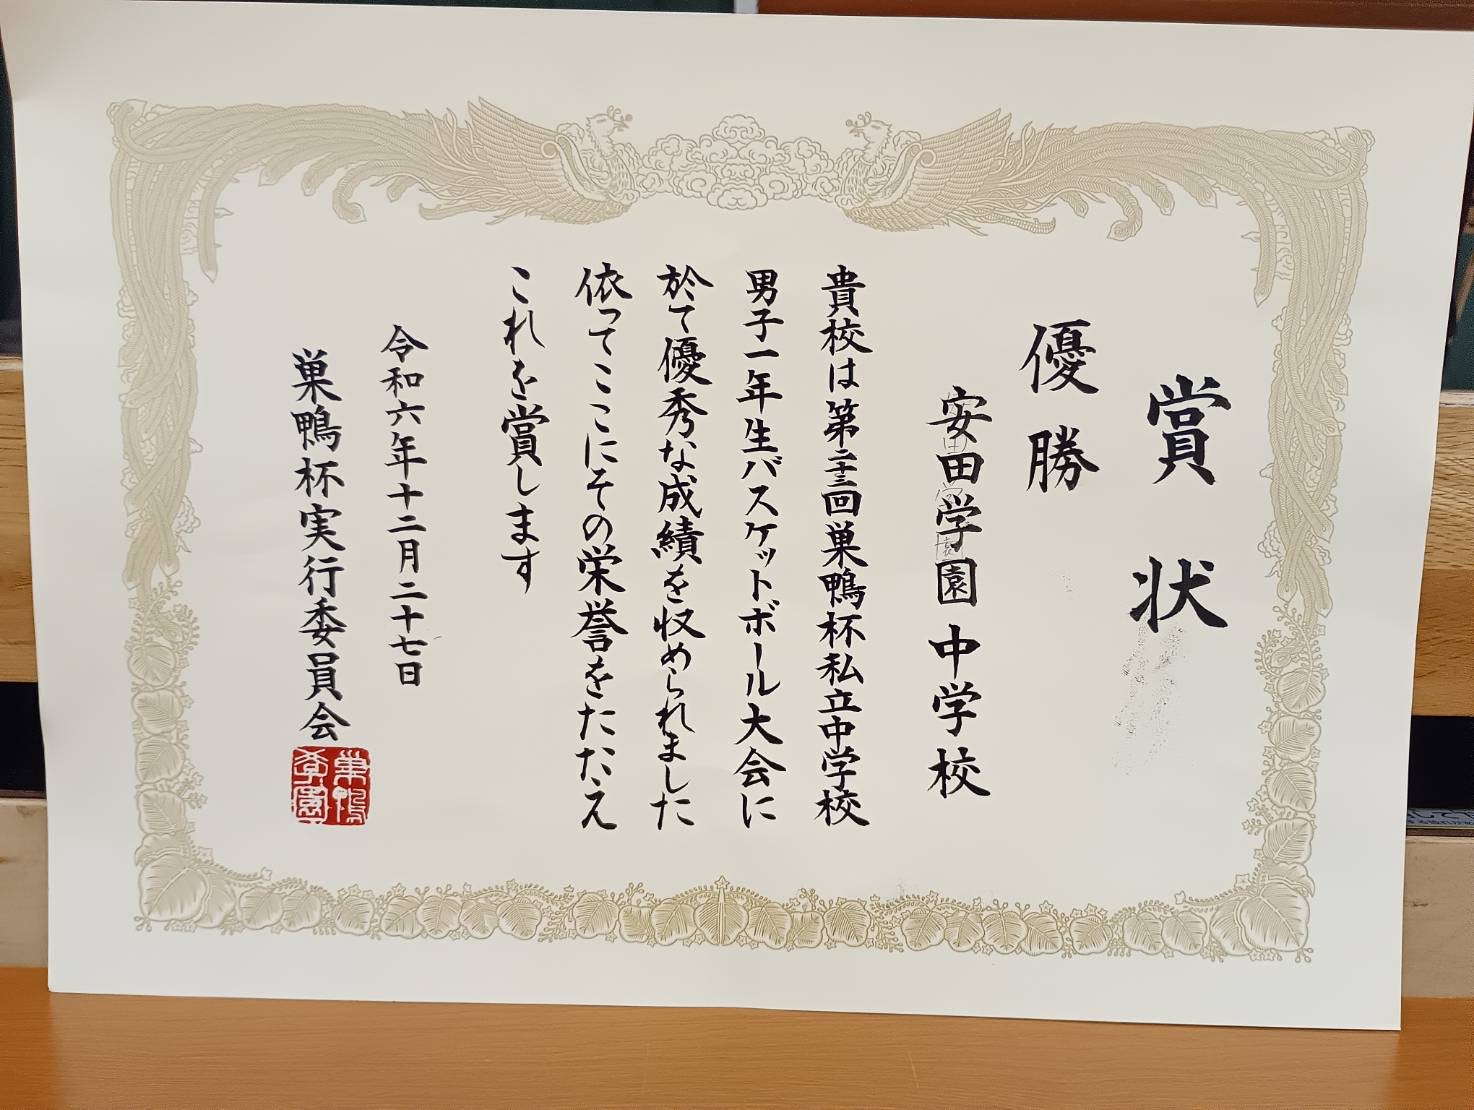 賞状
優勝
安田学園中学校
貴校は第二十三回巣鴨杯私立中学校
男子一年生バスケットボール大会に
於て優秀な成績を収められました
依ってここにその栄誉をたたえ
これを賞します
令和六年十二月二十七日
巣鴨杯実行委員会